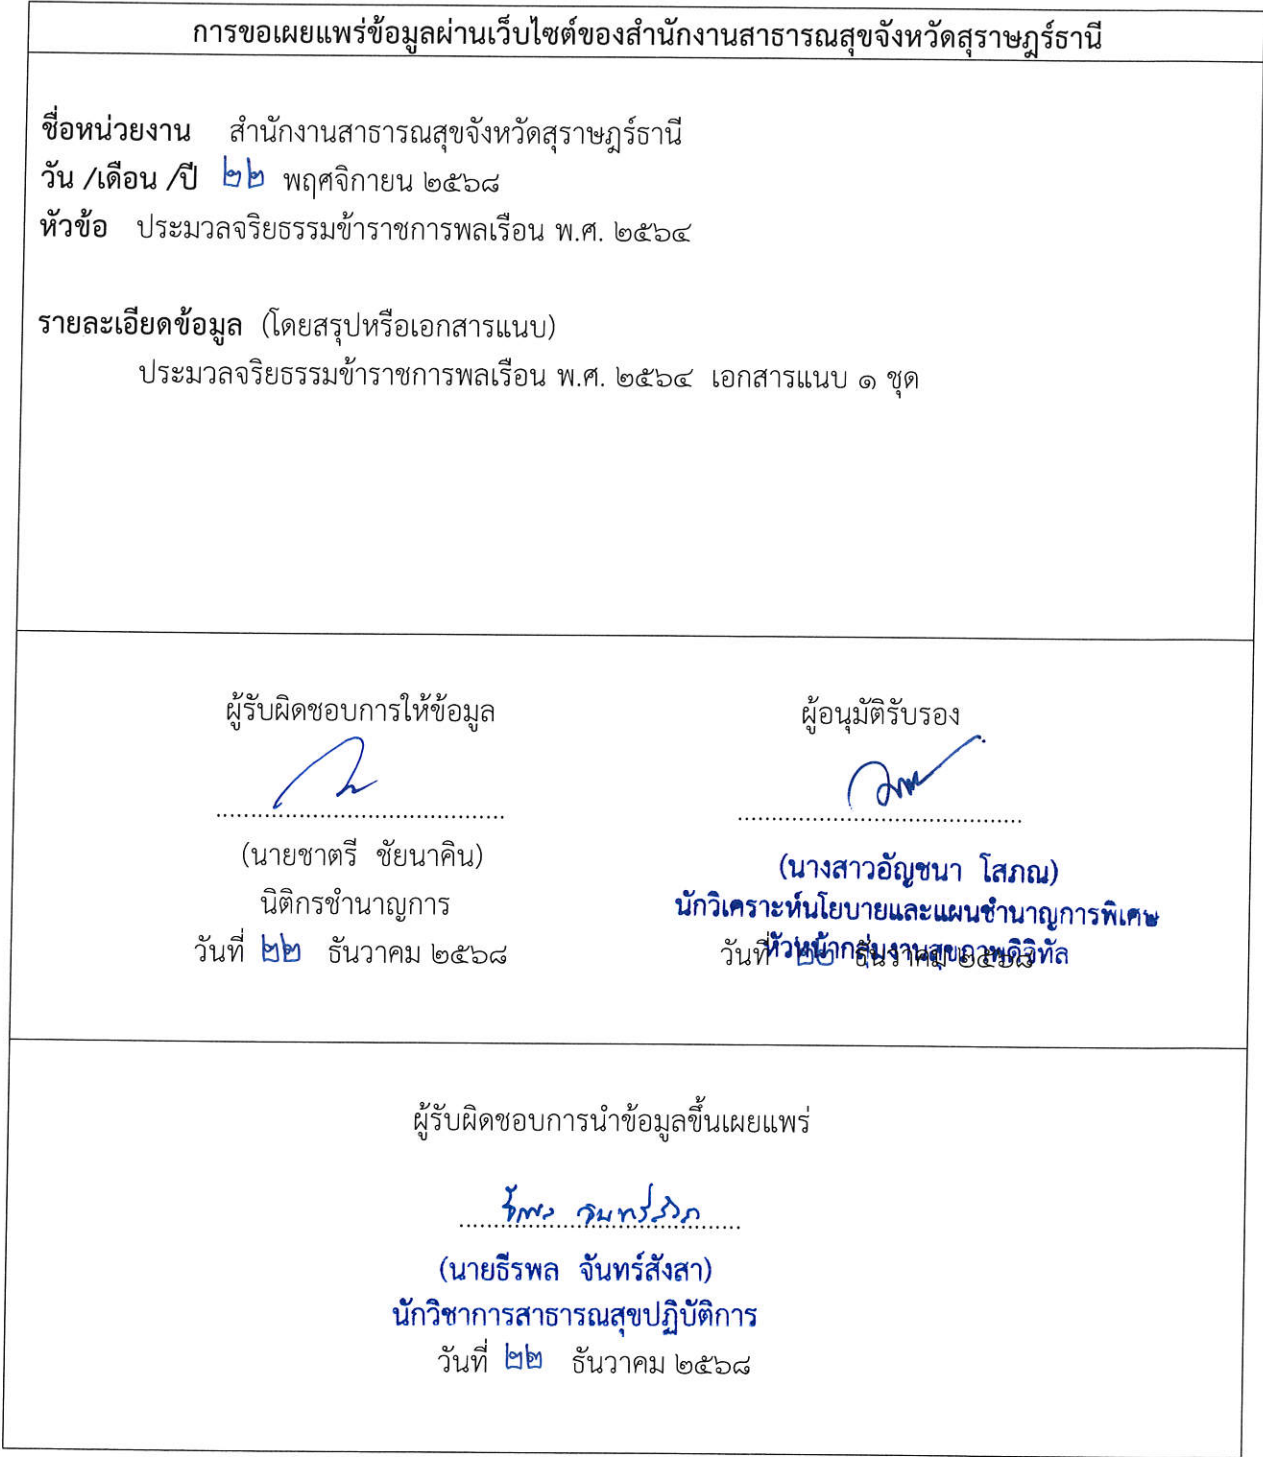 การขอเผยแพร่ข้อมูลผ่านเว็บไซต์ของสำนักงานสาธารณสุขจังหวัดสุราษฎร์ธานี
ชื่อหน่วยงาน สำนักงานสาธารณสุขจังหวัดสุราษฎร์ธานี
วัน /เดือน /ปี ๒๒ พฤศจิกายน ๒๕๖๘
หัวข้อ ประมวลจริยธรรมข้าราชการพลเรือน พ.ศ. ๒๕๖๔
รายละเอียดข้อมูล (โดยสรุปหรือเอกสารแนบ)
ประมวลจริยธรรมข้าราชการพลเรือน พ.ศ. ๒๕๖๔ เอกสารแนบ ๑ ชุด
ผู้รับผิดชอบการให้ข้อมูล
(นายชาตรี ชัยนาคิน)
นิติกรชำนาญการ
วันที่ ๒๒ ธันวาคม ๒๕๖๘
ผู้อนุมัติรับรอง
(นางสาวอัญชนา โสภณ)
นักวิเคราะห์นโยบายและแผนชำนาญการพิเศษ
หัวหน้ากลุ่มงานสุขภาพดิจิทัล
วันที่ ๒๒ ธันวาคม ๒๕๖๘
ผู้รับผิดชอบการนำข้อมูลขึ้นเผยแพร่
(นายธีรพล จันทร์สังสา)
นักวิชาการสาธารณสุขปฏิบัติการ
วันที่ ๒๒ ธันวาคม ๒๕๖๘